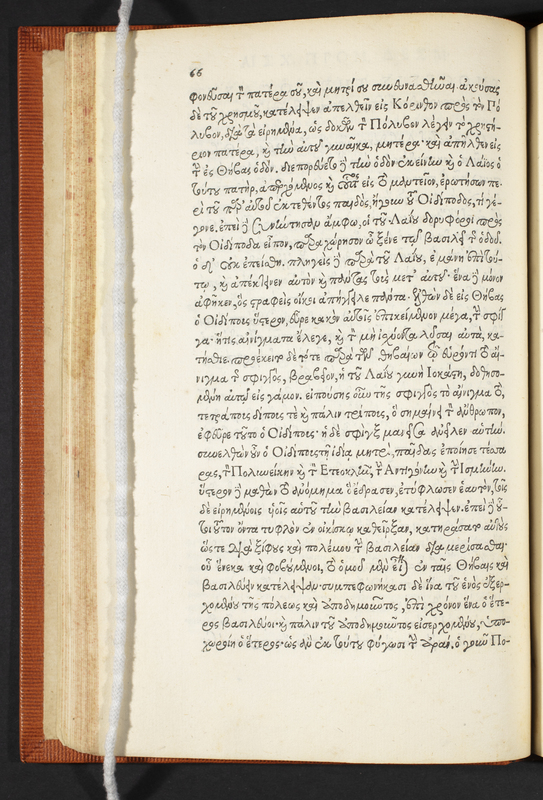 66
φονεῦσαι τὸν πατέρα σοῦ, καὶ μητρί σου συνευνασθῆναι. ἀκούσας
δὲ τοῦ χρησμοῦ, κατέλειψεν ἀπελθεῖν εἰς Κόρινθον πρὸς τὸν Πό
λυβον, διὰ τὰ εἰρημένα, ὡς δοκῶν τὸν Πόλυβον λέγειν τὸ χρησή-
ριον πατέρα, καὶ τὴν αὐτοῦ γυναῖκα, μητέρα· καὶ ἀπῆλθεν εἰς
τὴν ἐς Θήβας ὁδόν. διεπορεύετο δὲ τὴν ὁδὸν ἐκείνην καὶ ὁ Λαΐος ὁ
τούτου πατὴρ, ἀπερχόμενος καὶ οὗτος εἰς τὸ μαντεῖον, ἐρωτήσων πε-
ρὶ τοῦ παρ' αὐτοῦ ἐκτεθέντος παιδὸς, ἤγουν τοῦ Οἰδίποδος, τί γέ-
γονε. ἐπεὶ δὲ συνήντησαν ἄμφω, οἱ τοῦ Λαΐου δορυφόροι πρὸς
τὸν Οἰδίποδα εἶπον, παραχώρησον ὦ ξένε τῷ βασιλεῖ τῆς ὁδοῦ.
ὁ δ' οὐκ ἐπείσθη. πληγεὶς δὲ παρὰ τοῦ Λαΐου, ἐμάνη ἐπὶ τού-
τῳ, καὶ ἀπέκτεινεν αὐτὸν καὶ πάντας τοὺς μετ' αὐτοῦ· ἕνα δὲ μόνον
ἀφῆκεν, ὃς στραφεὶς οἴκοι ἀπήγγειλε πάντα. ἐλθὼν δὲ εἰς Θήβας
ὁ Οἰδίπους ὕστερον, εὗρε κακὸν αὐτοῖς ἐπικείμενον μέγα, τὴν σφίγ
γα· ἥτις αἰνίγματα ἔλεγε, καὶ τὸν μὴ ἰσχύοντα λῦσαι αὐτὰ, κα-
τήσθιε. προέκειτο δὲ τότε παρὰ τῶν Θηβαίων τῷ εὑρόντι τὸ αἴ-
νιγμα τῆς σφιγγὸς, βραβεῖον, ἡ τοῦ Λαΐου γυνὴ Ἰοκάστη, δοθησο-
μένη αὐτῷ εἰς γάμον. εἰπούσης οὖν τῆς σφιγγὸς τὸ αἴνιγμα τὸ,
τετράπους δίπους τὲ καὶ πάλιν τρίπους, ὃ σημαίνει τὸν ἄνθρωπον,
ἐφεῦρε τοῦτο ὁ Οἰδίπους· ἡ δὲ σφὶγξ μανεῖσα ἀνεῖλεν αὐτήν.
συνελθὼν οὖν ὁ Οἰδίπους τῇ ἰδίᾳ μητρὶ, παῖδας ἐποίησε τέσσα
ρας, τὸν Πολυνείκην καὶ τὸν Ἐτεοκλῆν, τὴν Ἀντιγόνην καὶ τὴν Ἰσμήνην.
ὕστερον δὲ μαθὼν τὸ ἀνόμημα ὃ ἔδρασεν, ἐτύφλωσεν ἑαυτὸν, τοῖς
δὲ εἰρημένοις υἱοῖς αὐτοῦ τὴν βασιλείαν κατέλειψεν. ἐπεὶ δὲ οὗ-
τοι τοῦτον ὄντα τυφλὸν ἐν οἰκίσκῳ καθεῖρξαν, κατηράσατο αὐτοὺς
ὥστε διὰ ξίφους καὶ πολέμου τὴν βασιλείαν διαμερίσασθαι·
οὗ ἕνεκα καὶ φοβούμενοι, τὸ ὁμοῦ μὲν εἶναι ἐν ταῖς Θήβαις καὶ
βασιλεύειν κατέλειψαν. συμπεφωνήκασι δὲ ἵνα τοῦ ἑνὸς ἐξερ-
χομένου τῆς πόλεως καὶ ἀποδημοῦντος, ἐπὶ χρόνον ἕνα ὁ ἕτε-
ρος βασιλεύοι· καὶ πάλιν τοῦ ἀποδημοῦντος εἰσερχομένου, ὑπο-
χωροίη ὁ ἕτερος· ὡς ἂν ἐκ τούτου φύγωσι τὴν ἀράν. ὁ γοῦν Πο-